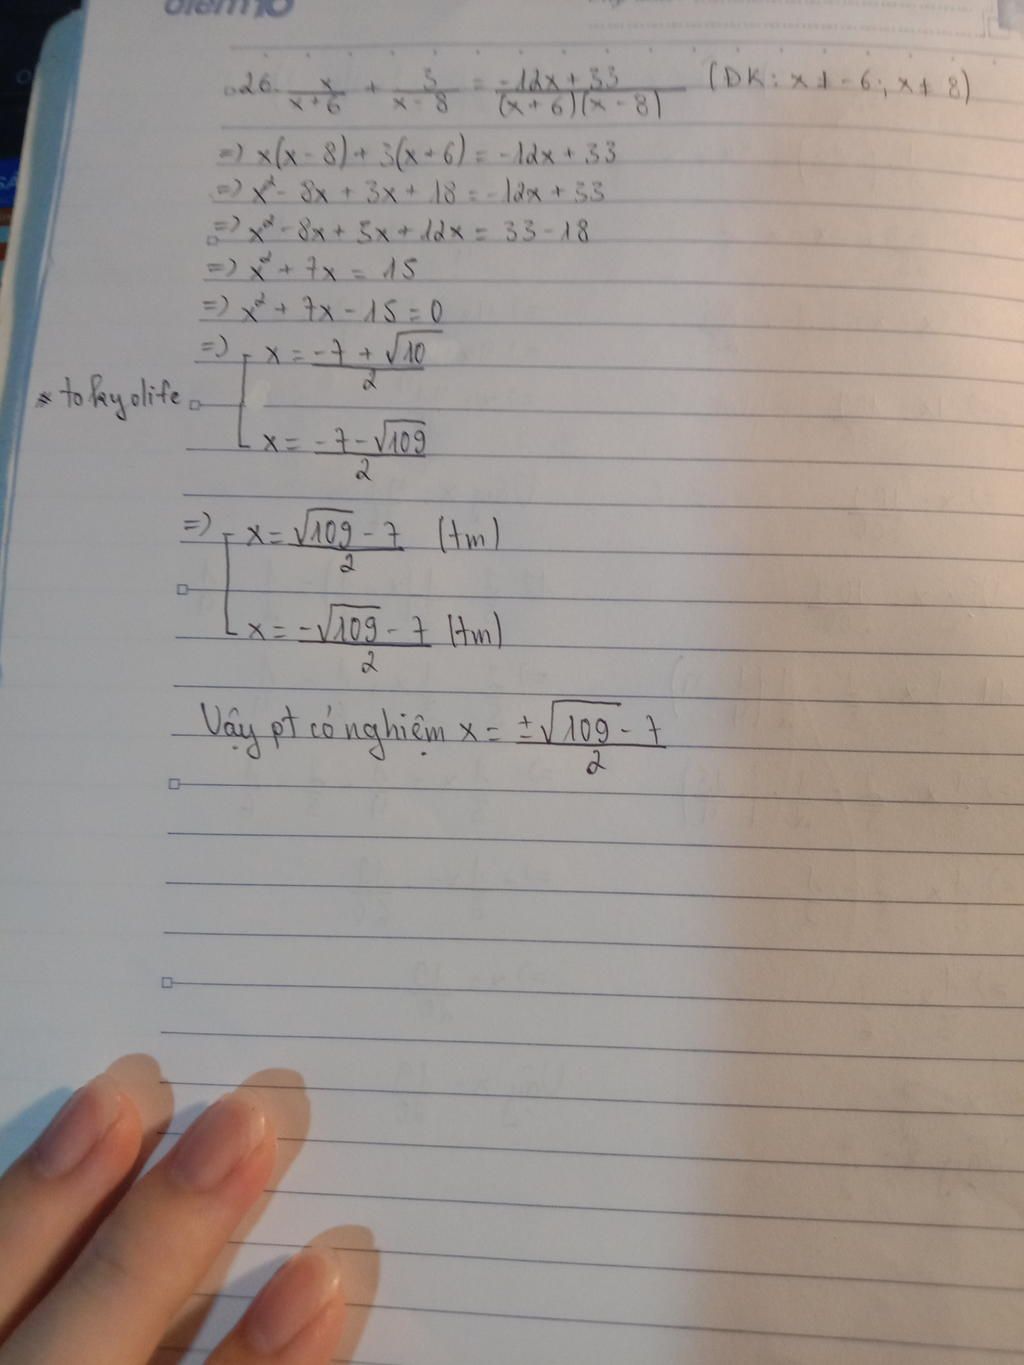 26. x/(x+6) + 3/(x-8) = (-12x+33)/((x+6)(x-8)) (DK: x≠-6; x≠8)
=) x(x-8)+3(x+6)=-12x+33
=) x²-8x+3x+18=-12x+33
=) x²-8x+3x+12x=33-18
=) x²+7x=15
=) x²+7x-15=0
=) [ x=(-7+√10)/2
* tokyolife
x=(-7-√109)/2
=) [ x=(√109-7)/2 (tm)
x=(-√109-7)/2 (tm)
Vậy pt có nghiệm x=(±√109-7)/2